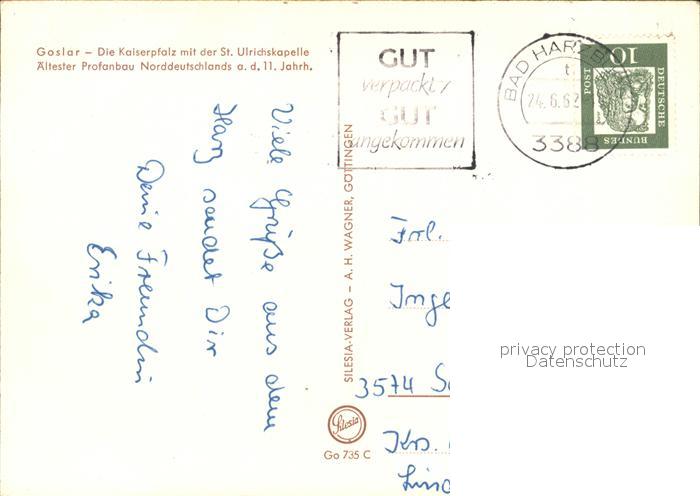 Goslar – Die Kaiserpfalz mit der St. Ulrichskapelle
Ältester Profanbau Norddeutschlands a. d. 11. Jahrh.
GUT
verpackt/
GUT
angekommen
BAD HARZB
24.6.6
3388
10
DEUTSCHE
BUNDES
POST
Viele Grüße aus dem
Harz sendet Dir
Deine Freundin
Erika
SILESIA-VERLAG – A. H. WAGNER, GÖTTINGEN
Silesia
Go 735 C
Frl.
Inge
3574
Krs.
privacy protection
Datenschutz